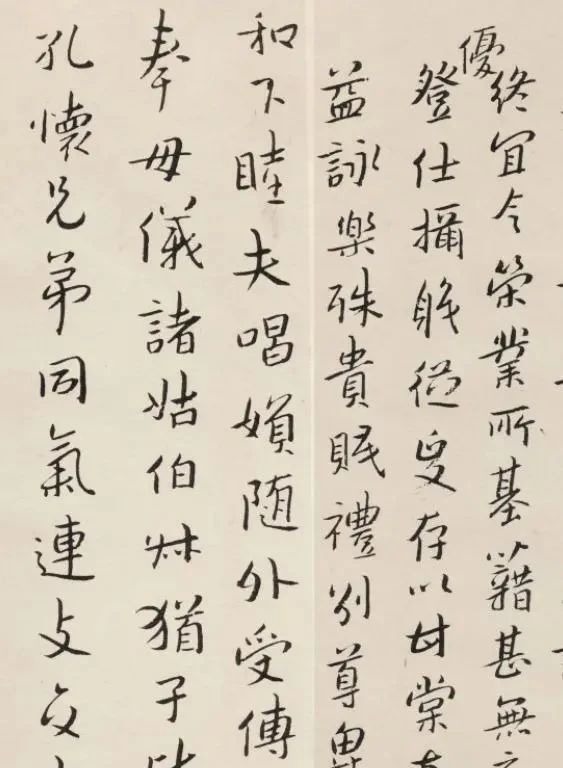 終宜令榮業所基籍甚無
優登仕攝職從政存以甘棠
益詠樂殊貴賤禮別尊卑
和下睦夫唱婦随外受傅
奉母儀諸姑伯叔猶子
孔懷兄弟同氣連枝交